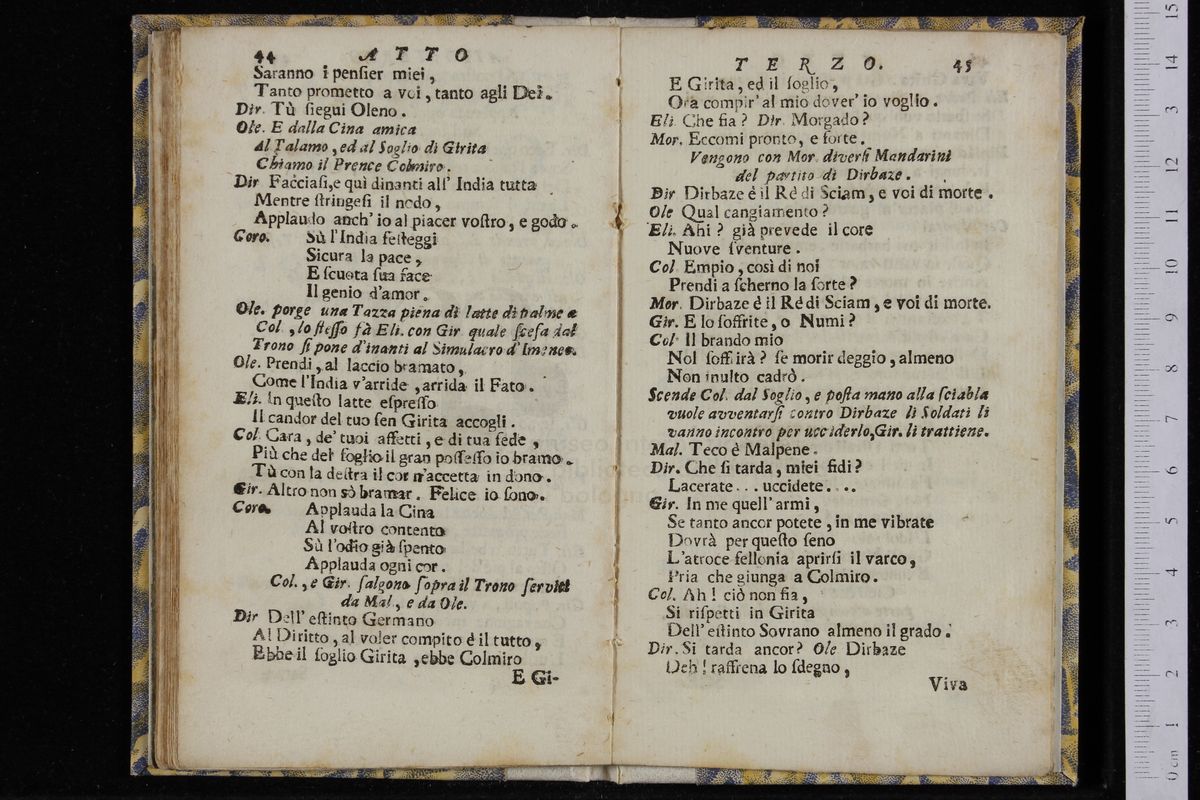 44 ATTO
Saranno i pensier miei,
Tanto prometto a voi, tanto agli Dei.
Dir. Tù siegui Oleno.
Ole. E dalla Cina amica
Al Talamo, ed al Soglio di Girita
Chiamo il Prence Colmiro.
Dir Facciasi, e quì dinanti all' India tutta
Mentre stringesi il nodo,
Applaudo anch' io al piacer vostro, e godo.
Coro. Sù l'India festeggi
Sicura la pace,
E scuota sua face
Il genio d'amor.
Ole. porge una Tazza piena di latte di palme a
Col., lo stesso fà Eli. con Gir quale scesa dal
Trono si pone d'inanti al Simulacro d'Imeneo.
Ole. Prendi, al laccio bramato,
Come l'India v'arride, arrida il Fato.
Eli. In questo latte espresso
Il candor del tuo sen Girita accogli.
Col Cara, de' tuoi affetti, e di tua fede,
Più che del soglio il gran possesso io bramo.
Tù con la destra il cor m'accetta in dono.
Gir. Altro non sò bramar. Felice io sono.
Coro. Applauda la Cina
Al vostro contento
Sù l'odio già spento
Applauda ogni cor.
Col., e Gir. salgono sopra il Trono serviti
da Mal, e da Ole.
Dir Dell' estinto Germano
Al Diritto, al voler compito è il tutto,
Ebbe il soglio Girita, ebbe Colmiro
E Gi-
TERZO. 45
E Girita, ed il soglio,
Ora compir' al mio dover' io voglio.
Eli. Che fia? Dir. Morgado?
Mor. Eccomi pronto, e forte.
Vengono con Mor. diversi Mandarini
del partito di Dirbaze.
Dir Dirbaze è il Rè di Sciam, e voi di morte.
Ole Qual cangiamento?
Eli. Ahi? già prevede il core
Nuove sventure.
Col Empio, così di noi
Prendi a scherno la sorte?
Mor. Dirbaze è il Rè di Sciam, e voi di morte.
Gir. E lo soffrite, o Numi?
Col Il brando mio
Nol soffirà? se morir deggio, almeno
Non inulto cadrò.
Scende Col. dal Soglio, e posta mano alla sciabla
vuole avventarsi contro Dirbaze li Soldati li
vanno incontro per ucciderlo, Gir. li trattiene.
Mal. Teco è Malpene.
Dir. Che si tarda, miei fidi?
Lacerate... uccidete....
Gir. In me quell' armi,
Se tanto ancor potete, in me vibrate
Dovrà per questo seno
L'atroce fellonia aprirsi il varco,
Pria che giunga a Colmiro.
Col. Ah! ciò non fia,
Si rispetti in Girita
Dell' estinto Sovrano almeno il grado.
Dir. Si tarda ancor? Ole Dirbaze
Deh! raffrena lo sdegno,
Viva
0 cm 1 2 3 4 5 6 7 8 9 10 11 12 13 14 15